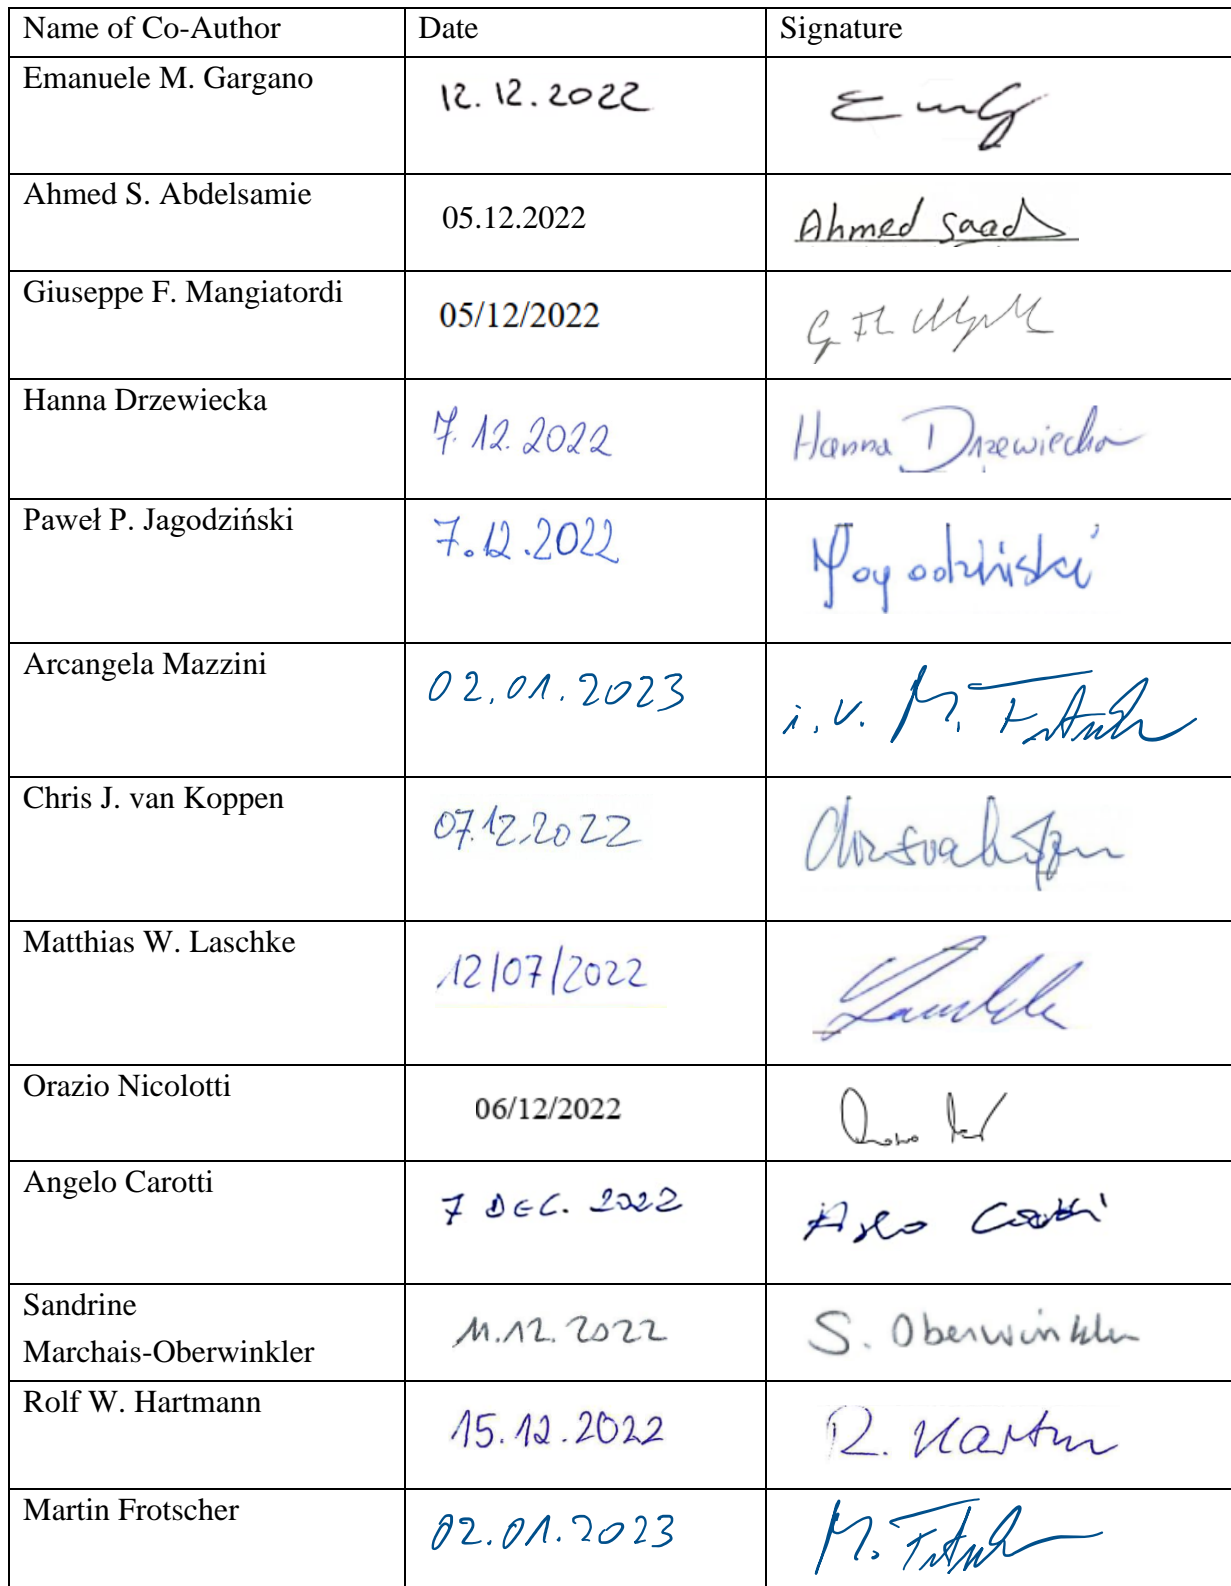 Name of Co-Author Date Signature
Emanuele M. Gargano 12.12.2022
Ahmed S. Abdelsamie 05.12.2022 Ahmed Saad
Giuseppe F. Mangiatordi 05/12/2022
Hanna Drzewiecka 7.12.2022 Hanna Drzewiecka
Paweł P. Jagodziński 7.12.2022 Jagodziński
Arcangela Mazzini 02.01.2023 i.V. M.
Chris J. van Koppen 07.12.2022
Matthias W. Laschke 12/07/2022
Orazio Nicolotti 06/12/2022
Angelo Carotti 7 DEC. 2022
Sandrine
Marchais-Oberwinkler 11.12.2022 S. Oberwinkler
Rolf W. Hartmann 15.12.2022 R. Hartm
Martin Frotscher 02.01.2023 M.